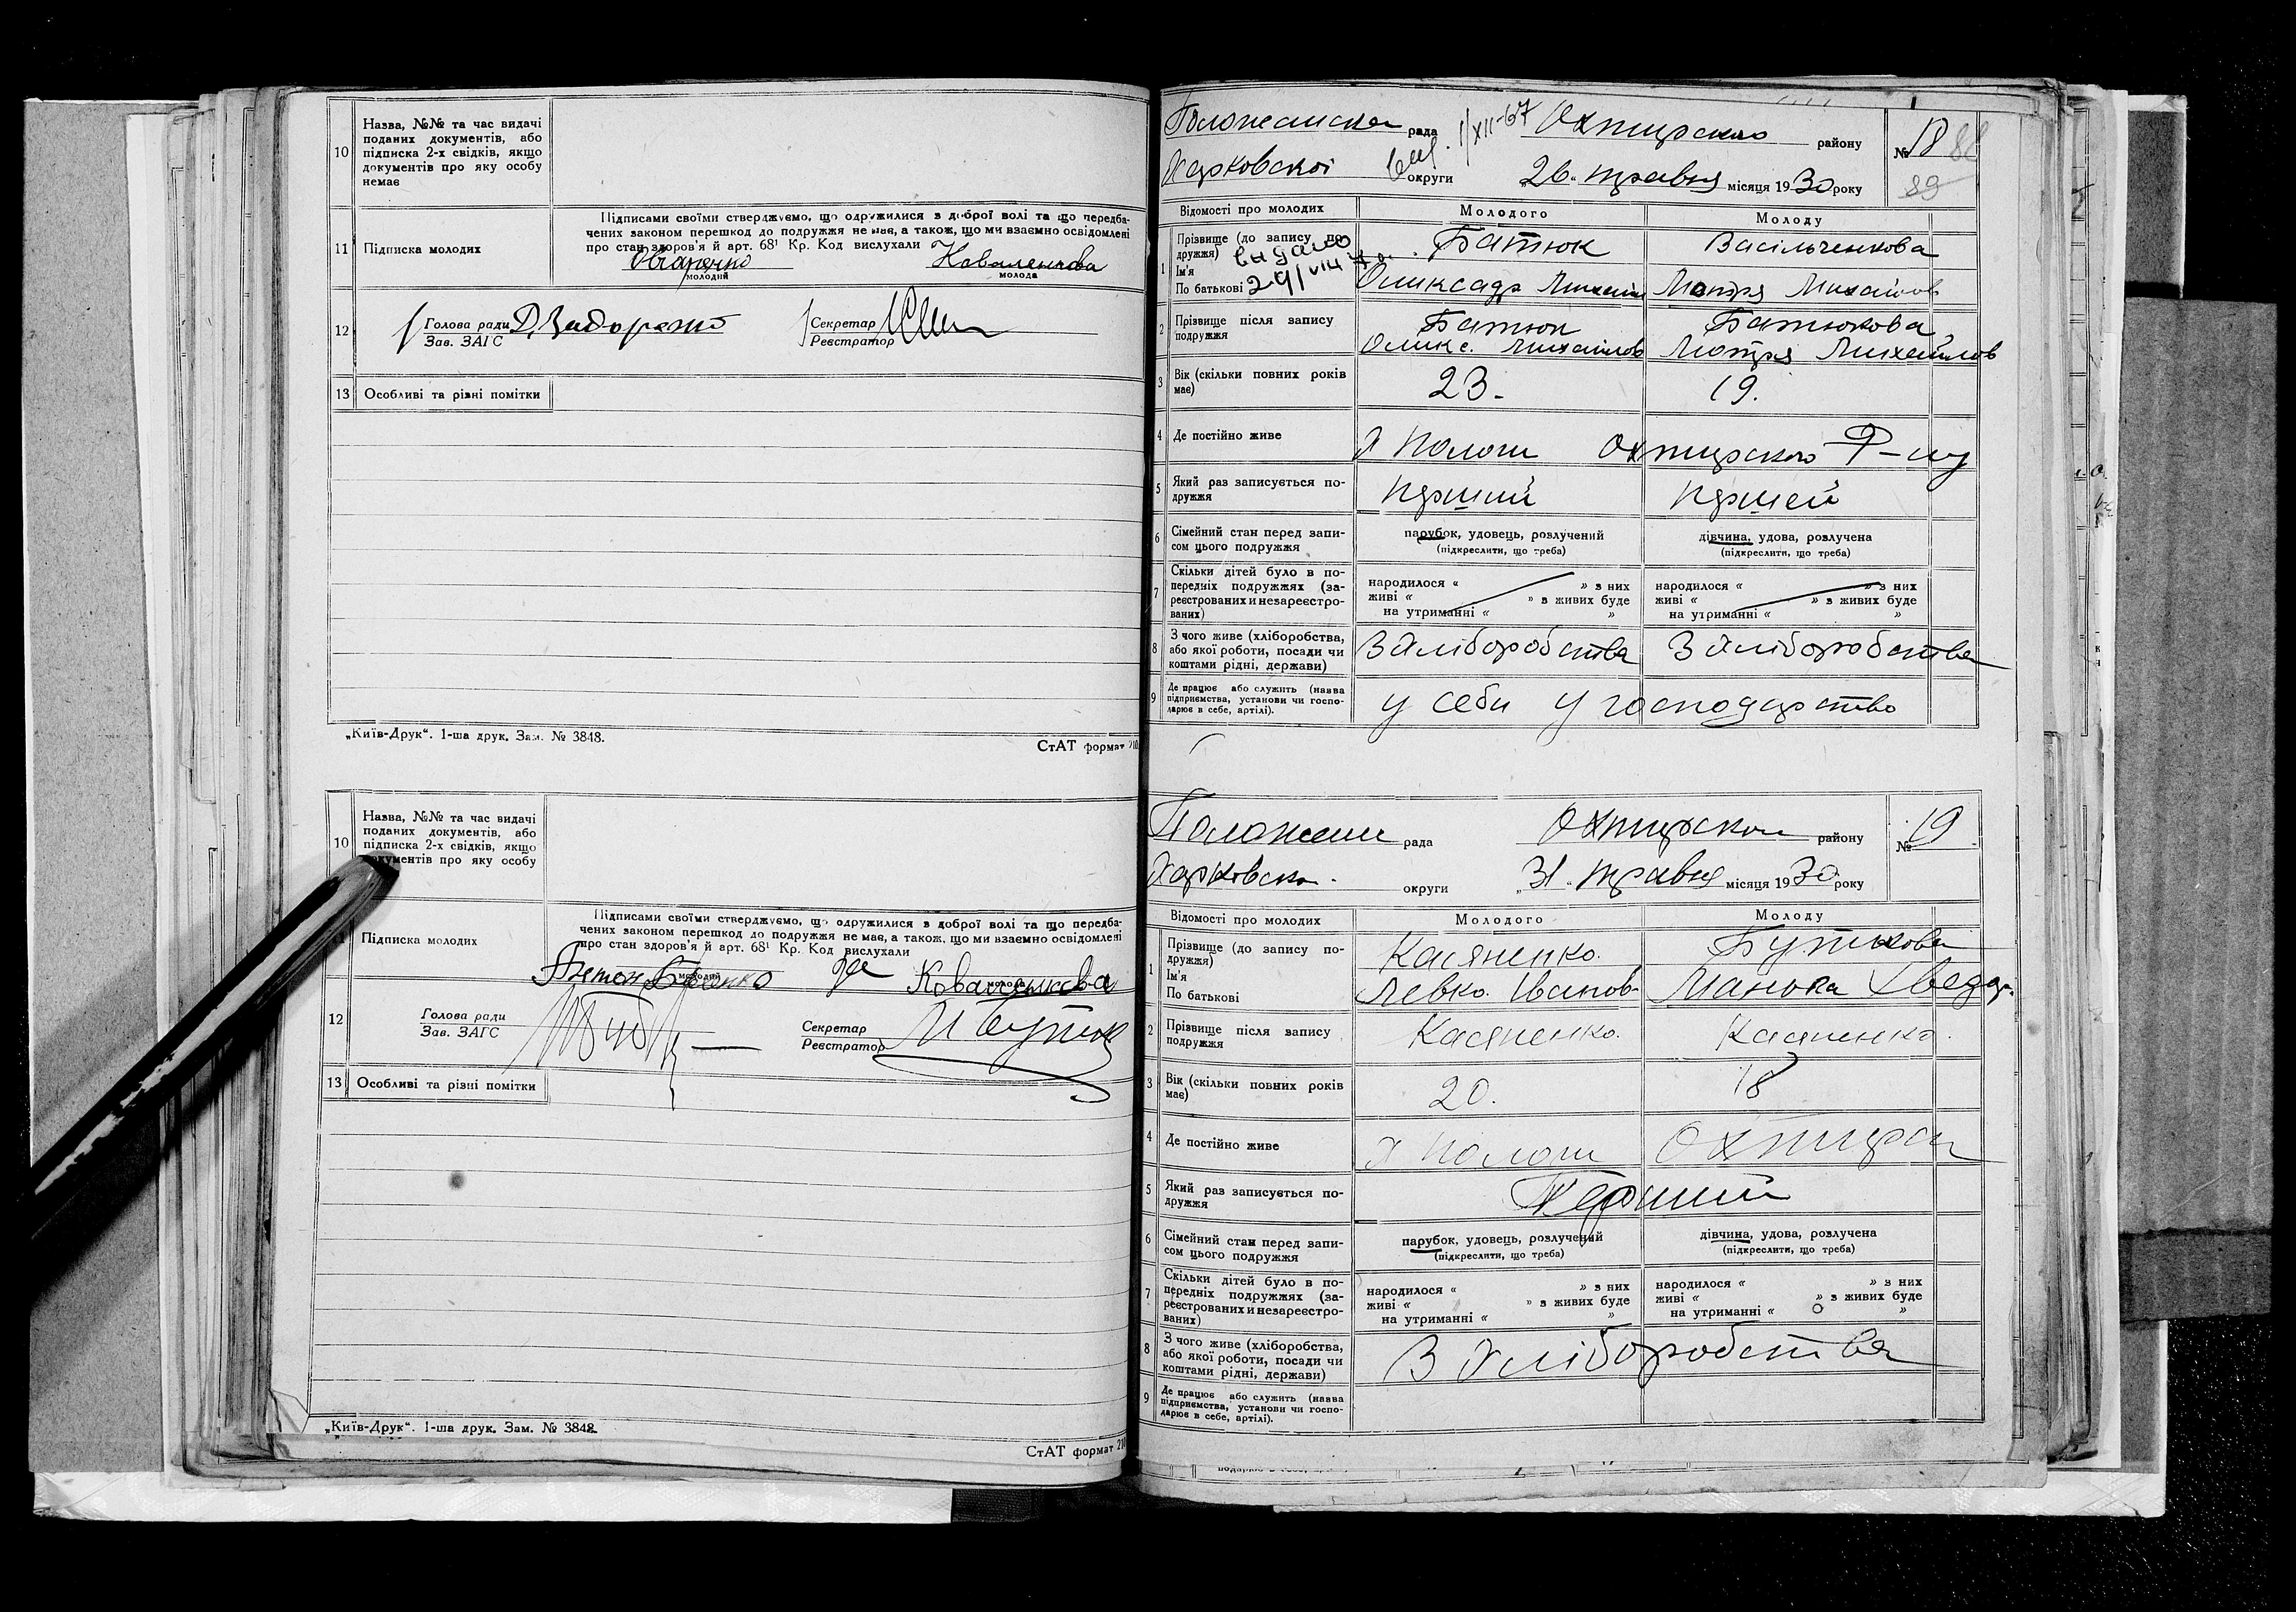 10
Назва, №№ та час видачі
поданих документів, або
підписка 2-х свідків, якщо
документів про яку особу
немає
11
Підписка молодих
Підписами своїми стверджуємо, що одружилися з доброї волі та що передба-
чених законом перешкод до подружжя не має, а також, що ми взаємно освідомлені
про стан здоров'я й арт. 68¹ Кр. Код вислухали
Овчаренко
Коваленкова
молодий
молода
12
Голова ради
Зав. ЗАГС
Секретар
Реєстратор
13 Особливі та різні помітки
„Київ-Друк“. 1-ша друк. Зам. № 3848.
СтАТ формат 210
10
Назва, №№ та час видачі
поданих документів, або
підписка 2-х свідків, якщо
документів про яку особу
Підписка молодих
Підписами своїми стверджуємо, що одружилися з доброї волі та що передба-
чених законом перешкод до подружжя не має, а також, що ми взаємно освідомлені
про стан здоров'я й арт. 68¹ Кр. Код вислухали
Коваленкова
12
Голова ради
Зав. ЗАГС
Секретар
Реєстратор
13 Особливі та різні помітки
„Київ-Друк“. 1-ша друк. Зам. № 3848.
СтАТ формат 210
рада 1/XII-67 Охтирського району № 18
89
Харковської округи „26“ травня місяця 1930 року
Відомості про молодих
Молодого
Молоду
1
Прізвище (до запису по-
дружжя)
Ім'я
По батькові
видано
29/VIII
Батюк
Васільченкова
Олександр Михайлов
Мотря Михайлов
2
Прізвище після запису
подружжя
Батюк
Батюкова
Олекс. Михайлов
Мотря Михайлов
3
Вік (скільки повних років
має)
23.
19.
4
Де постійно живе
х Пологи Охтирского Р-ну
5
Який раз записується по-
дружжя
перший
першей
6
Сімейний стан перед запи-
сом цього подружжя
парубок, удовець, розлучений
(підкреслити, що треба)
дівчина, удова, розлучена
(підкреслити, що треба)
7
Скільки дітей було в по-
передніх подружжях (за-
реєстрованих и незареєстро-
ваних)
народилося “ » з них
живі “ » з живих буде
на утриманні “ »
народилося “ » з них
живі “ » з живих буде
на утриманні “ »
8
З чого живе (хліборобства,
або якої роботи, посади чи
коштами рідні, держави)
З хліборобства
З хліборобства
9
Де працює або служить (назва
підприємства, установи чи госпо-
дарює в себе, артілі).
у себи у господарство
рада Охтирском району № 19
округи „31“ травня місяця 1930 року
Відомості про молодих
Молодого
Молоду
1
Прізвище (до запису по-
дружжя)
Ім'я
По батькові
Касяненко.
Левко Іванов-
Хведор.
2
Прізвище після запису
подружжя
Касяненко.
Касяненко.
3
Вік (скільки повних років
має)
20.
18
4
Де постійно живе
х Пологи
5
Який раз записується по-
дружжя
Перший
6
Сімейний стан перед запи-
сом цього подружжя
парубок, удовець, розлучений
(підкреслити, що треба)
дівчина, удова, розлучена
(підкреслити, що треба)
7
Скільки дітей було в по-
передніх подружжях (за-
реєстрованих и незареєстро-
ваних)
народилося “ » з них
живі “ » з живих буде
на утриманні “ »
народилося “ » з них
живі “ » з живих буде
на утриманні “ »
8
З чого живе (хліборобства,
або якої роботи, посади чи
коштами рідні, держави)
З хліборобства
9
Де працює або служить (назва
підприємства, установи чи госпо-
дарює в себе, артілі).